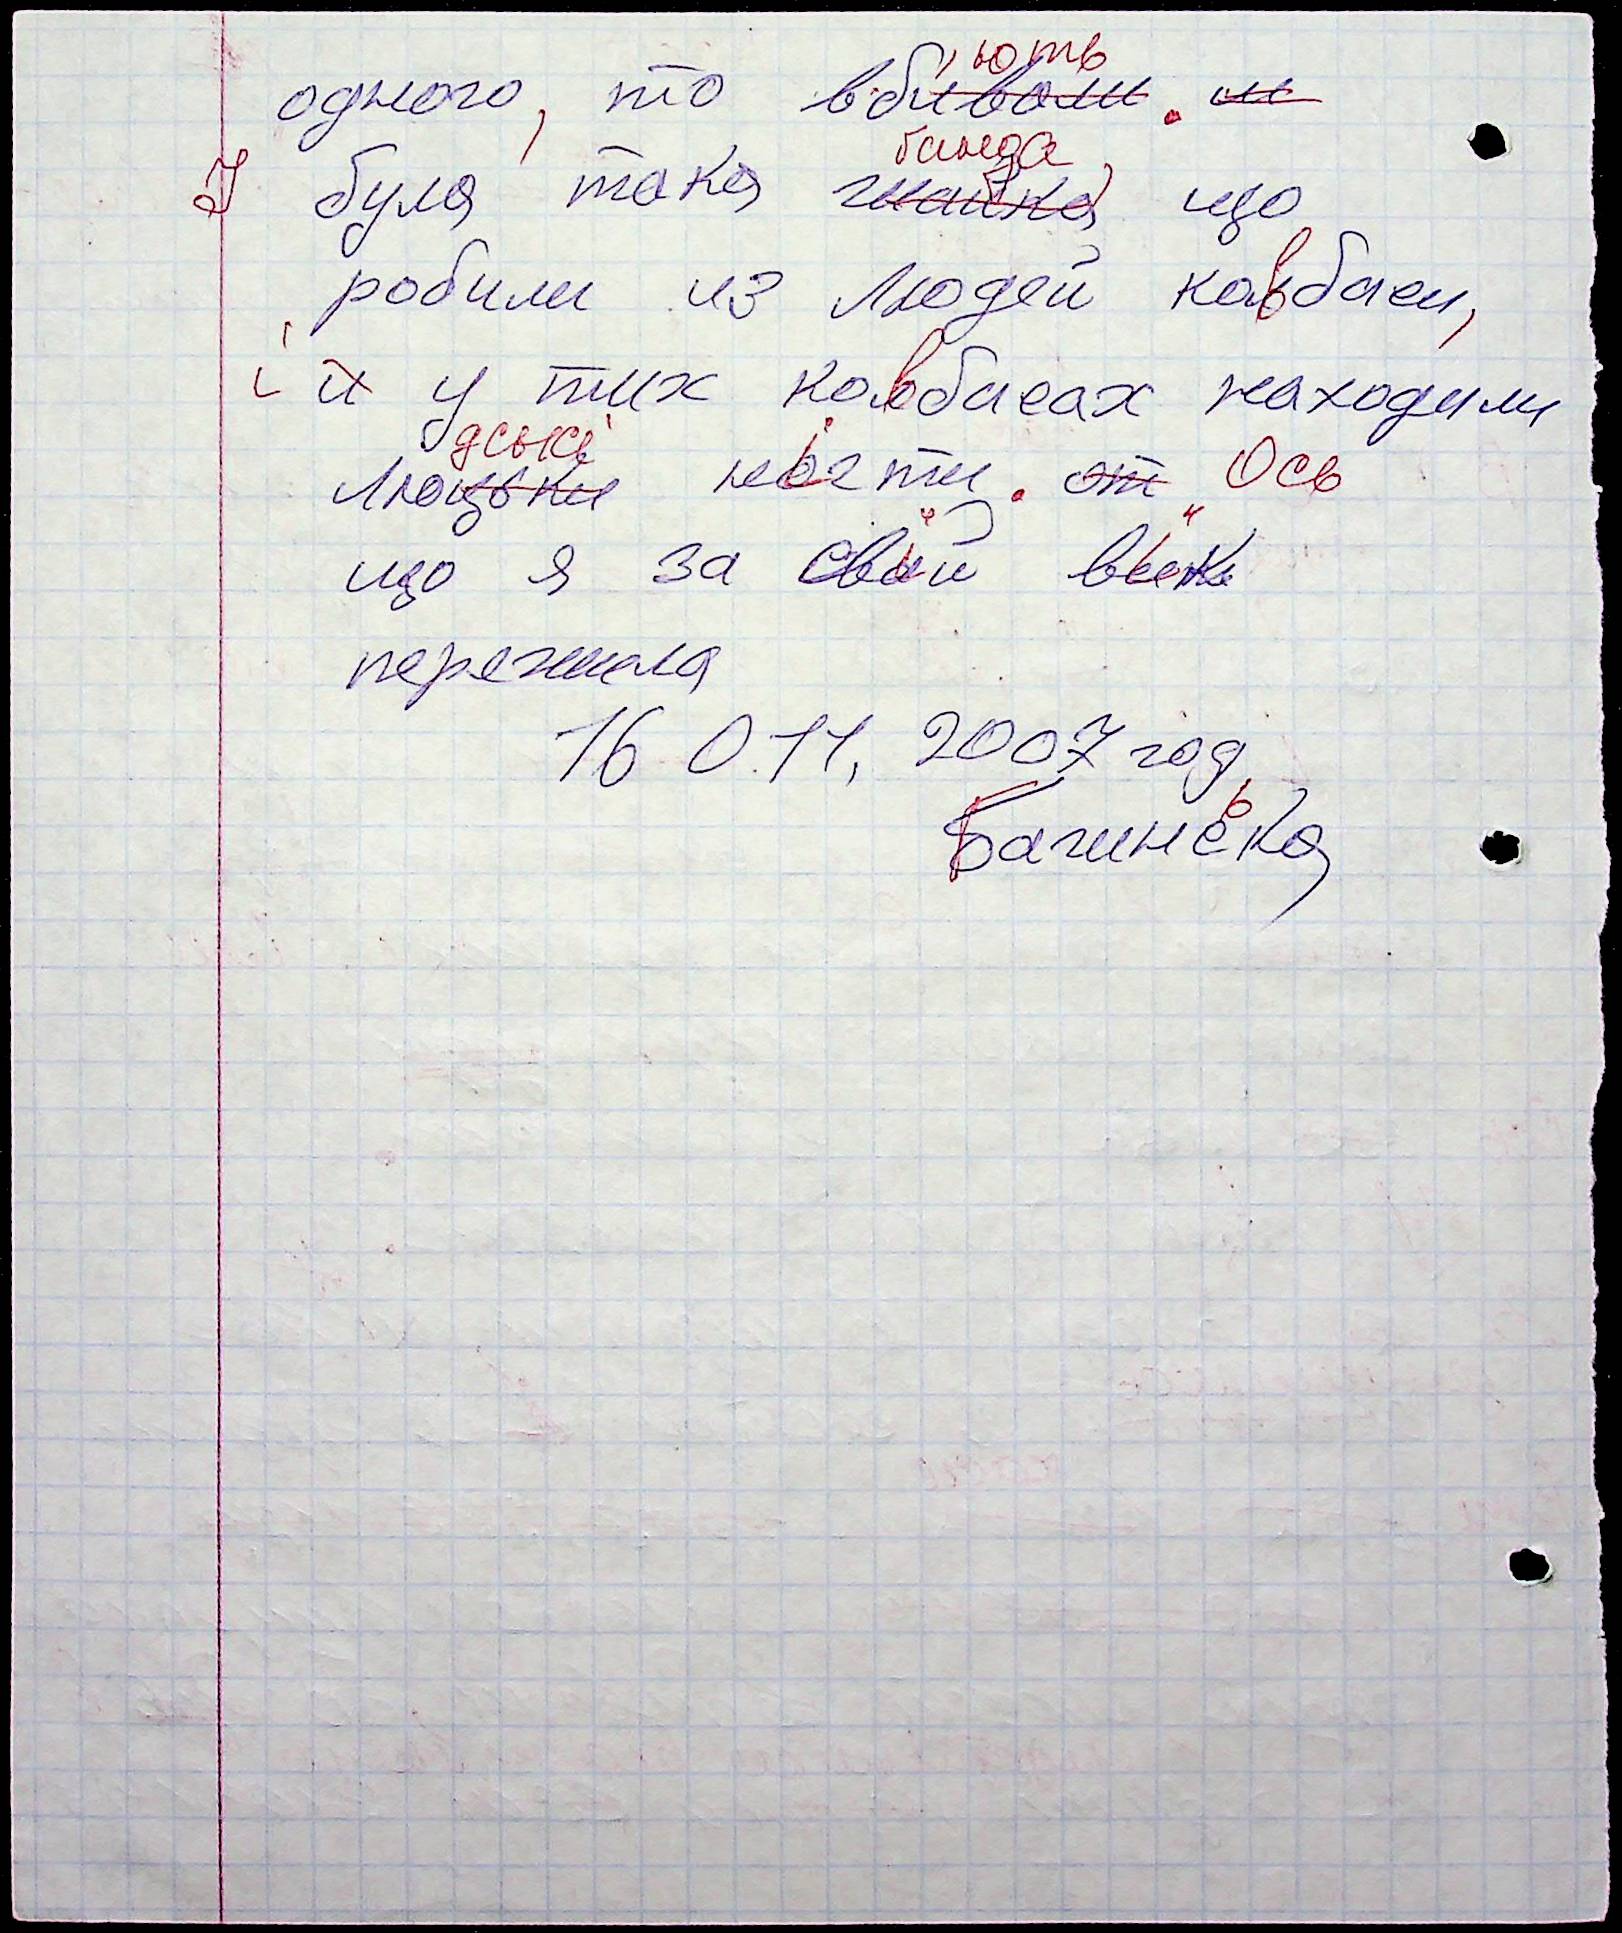 ють
одного, то вбивали. и
банда
І була така шайка, що
робили из людей ковбаси,
і й у тих ковбасах находили
дські
люцьки ногти. от Ось
що я за свий вик
пережила
16 0.11, 2007 год
ь
Багинска